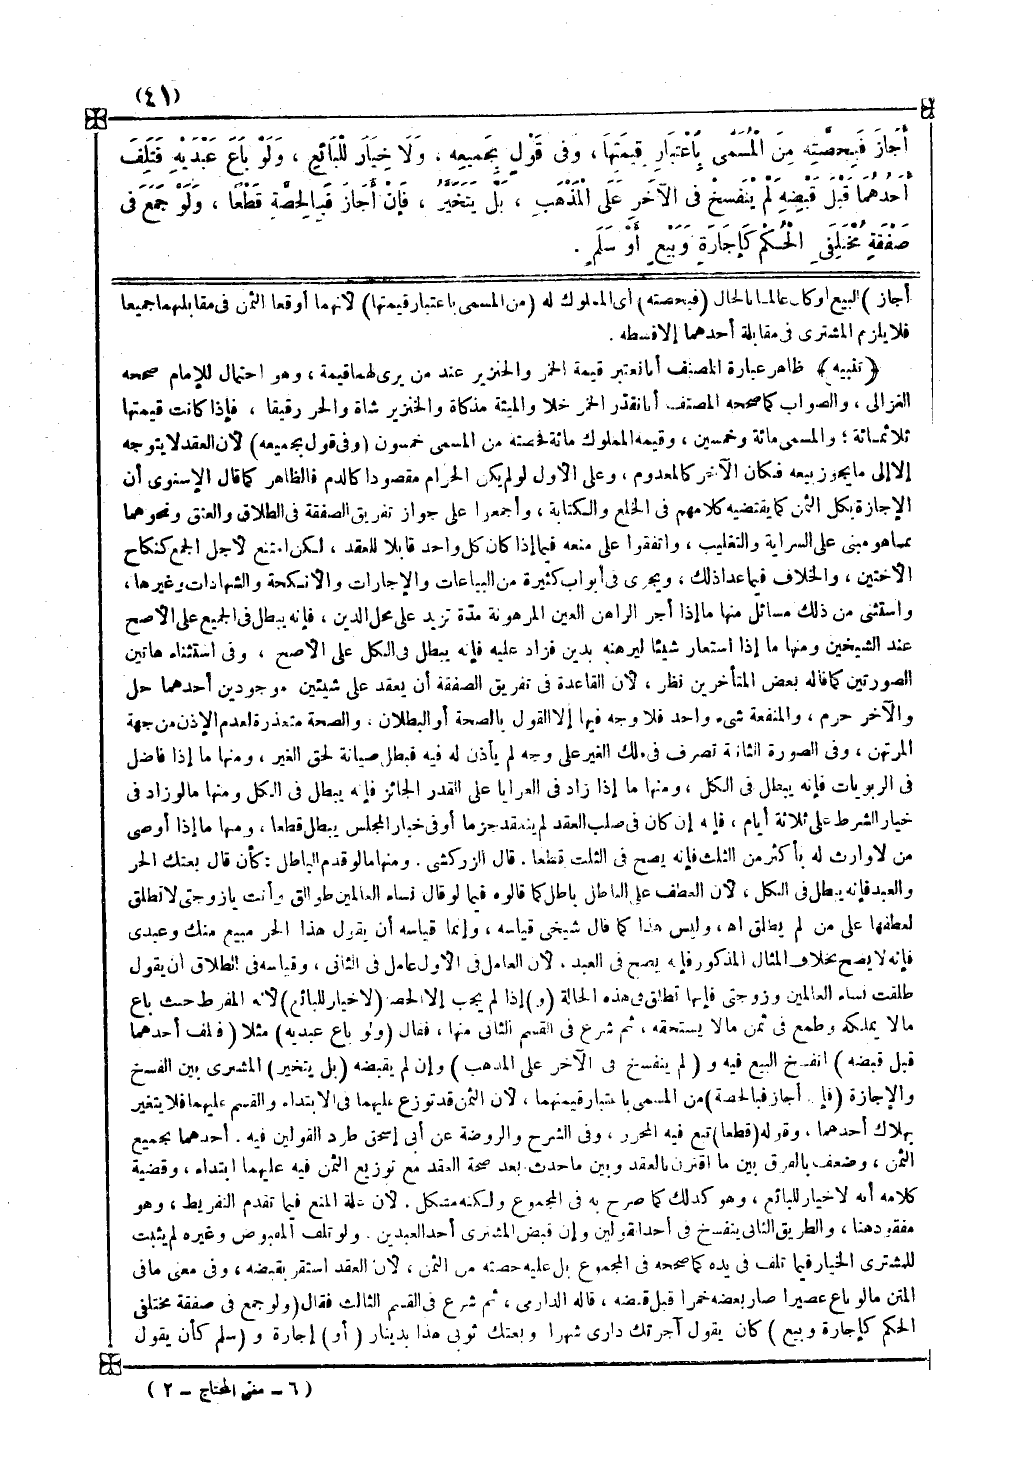 (٤١)
أَجَازَ فَبِحِصَّتِهِ مِنَ الْمُسَمَّى بِاعْتِبَارِ قِيمَتِهَا ، وَفِى قَوْلٍ بِجَمِيعِهِ ، وَلَا خِيَارَ لِلْبَائِعِ ، وَلَوْ بَاعَ عَبْدَيْهِ فَتَلِفَ
أَحَدُهُمَا قَبْلَ قَبْضِهِ لَمْ يَنْفَسِخْ فِى الْآخَرِ عَلَى الْمَذْهَبِ ، بَلْ يَتَخَيَّرُ ، فَإِنْ أَجَازَ فَبِالْحِصَّةِ قَطْعًا ، وَلَوْ جَمَعَ فِى
صَفْقَةٍ مُخْتَلِفَىِ الْحُكْمِ كَإِجَارَةٍ وَبَيْعٍ أَوْ سَلَمٍ .
أجاز ) البيع أو كان عالما بالحال (فبحصته) أى المملوك له (من المسمى باعتبار قيمتها) لأنهما أوقعا الثمن فى مقابلتهما جميعا
فلا يلزم المشترى فى مقابلة أحدهما إلا قسطه .
﴿تنبيه﴾ ظاهر عبارة المصنف أنا نعتبر قيمة الخمر والخنزير عند من يرى لهما قيمة ، وهو احتمال للإمام صححه
الغزالى ، والصواب كما صححه المصنف أنا نقدر الخمر خلا والميتة مذكاة والخنزير شاة والحر رقيقا ، فإذا كانت قيمتها
ثلاثمائة ؛ والمسمى مائة وخمسين ، وقيمة المملوك مائة فحصته من المسمى خمسون (وفى قول بجميعه) لأن العقد لا يتوجه
إلا إلى ما يجوز بيعه فكان الآخر كالمعدوم ، وعلى الأول لو لم يكن الحرام مقصودا كالدم فالظاهر كما قال الإسنوى أن
الإجازة بكل الثمن كما يقتضيه كلامهم فى الخلع والكتابة ، وأجمعوا على جواز تفريق الصفقة فى الطلاق والعتق ونحوهما
مما هو مبنى على السراية والتغليب ، واتفقوا على منعه فيما إذا كان كل واحد قابلا للعقد ، لكن امتنع لأجل الجمع كنكاح
الأختين ، والخلاف فيما عدا ذلك ، ويجرى فى أبواب كثيرة من البياعات والإجارات والأنكحة والشهادات وغيرها ،
واستثنى من ذلك مسائل منها ما إذا أجر الراهن العين المرهونة مدة تزيد على محل الدين ، فإنه يبطل فى الجميع على الأصح
عند الشيخين ومنها ما إذا استعار شيئا ليرهنه بدين فزاد عليه فإنه يبطل فى الكل على الأصح ، وفى استثناء هاتين
الصورتين كما قاله بعض المتأخرين نظر ، لأن القاعدة فى تفريق الصفقة أن يعقد على شيئين موجودين أحدهما حل
والآخر حرم ، والمنفعة شىء واحد فلا وجه فيها إلا القول بالصحة أو البطلان ، والصحة متعذرة لعدم الإذن من جهة
المرتهن ، وفى الصورة الثانية تصرف فى ملك الغير على وجه لم يأذن له فيه فبطل صيانة لحق الغير ، ومنها ما إذا فاضل
فى الربويات فإنه يبطل فى الكل ، ومنها ما إذا زاد فى العرايا على القدر الجائز فإنه يبطل فى الكل ومنها ما لو زاد فى
خيار الشرط على ثلاثة أيام ، فإنه إن كان فى صلب العقد لم ينعقد جزما أو فى خيار المجلس يبطل قطعا ، ومنها ما إذا أوصى
من لا وارث له بأكثر من الثلث فإنه يصح فى الثلث قطعا . قال الزركشى . ومنها ما لو قدم الباطل : كأن قال بعتك الحر
والعبد فإنه يبطل فى الكل ، لأن العطف على الباطل باطل كما قالوه فيما لو قال نساء العالمين طوالق وأنت يا زوجتى لا تطلق
لعطفها على من لم يطلق اه ، وليس هذا كما قال شيخى قياسه ، وإنما قياسه أن يقول هذا الحر مبيع منك وعبدى
فإنه لا يصح بخلاف المثال المذكور فإنه يصح فى العبد ، لأن العامل فى الأول عامل فى الثانى ، وقياسه فى الطلاق أن يقول
طلقت نساء العالمين وزوجتى فإنها تطلق فى هذه الحالة (و) إذا لم يجب إلا الحصة (لا خيار للبائع) لأنه المفرط حيث باع
مالا يملكه وطمع فى ثمن مالا يستحقه ، ثم شرع فى القسم الثانى منها ، فقال (ولو باع عبديه) مثلا (فتلف أحدهما
قبل قبضه ) انفسخ البيع فيه و ( لم ينفسخ فى الآخر على المذهب ) وإن لم يقبضه (بل يتخير) المشترى بين الفسخ
والإجازة (فإن أجاز فبالحصة) من المسمى باعتبار قيمتهما ، لأن الثمن قد توزع عليهما فى الابتداء والقسم عليهما فلا يتغير
بهلاك أحدهما ، وقوله (قطعا) تبع فيه المحرر ، وفى الشرح والروضة عن أبى إسحق طرد القولين فيه . أحدهما بجميع
الثمن ، وضعف بالفرق بين ما اقترن بالعقد وبين ما حدث بعد صحة العقد مع توزيع الثمن فيه عليهما ابتداء ، وقضية
كلامه أنه لا خيار للبائع ، وهو كذلك كما صرح به فى المجموع ولكنه مشكل . لأن علة المنع فيما تقدم التفريط ، وهو
مفقود هنا ، والطريق الثانى ينفسخ فى أحد القولين وإن قبض المشترى أحد العبدين . ولو تلف المقبوض وغيره لم يثبت
للمشترى الخيار فيما تلف فى يده كما صححه فى المجموع بل عليه حصته من الثمن ، لأن العقد استقر بقبضه ، وفى معنى ما فى
المتن ما لو باع عصيرا صار بعضه خمرا قبل قبضه ، قاله الدارمى ، ثم شرع فى القسم الثالث فقال (ولو جمع فى صفقة مختلفى
الحكم كإجارة وبيع ) كأن يقول آجرتك دارى شهرا وبعتك ثوبى هذا بدينار ( أو ) إجارة و (سلم كأن يقول
( ٦ - مغنى المحتاج - ٢ )